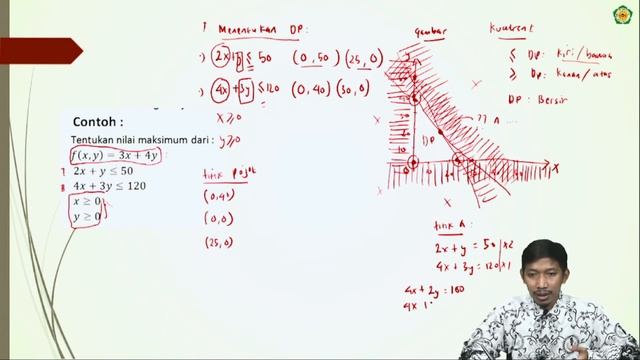 1 Menentukan DP:
2x+y ≤ 50 (0, 50) (25, 0)
4x+3y ≤ 120 (0, 40) (30, 0)
x ≥ 0
y ≥ 0
Contoh :
Tentukan nilai maksimum dari :
f(x, y) = 3x + 4y
2x + y ≤ 50
4x + 3y ≤ 120
x ≥ 0
y ≥ 0
titik pojok
(0,40)
(0,0)
(25,0)
Gambar
DP
A
X
Kuadrant
≤ DP: Kiri/bawah
≥ DP: Kanan/atas
DP: Bersih
titik A :
2x + y = 50 | x2
4x + 3y = 120 | x1
4x + 2y = 100
4x